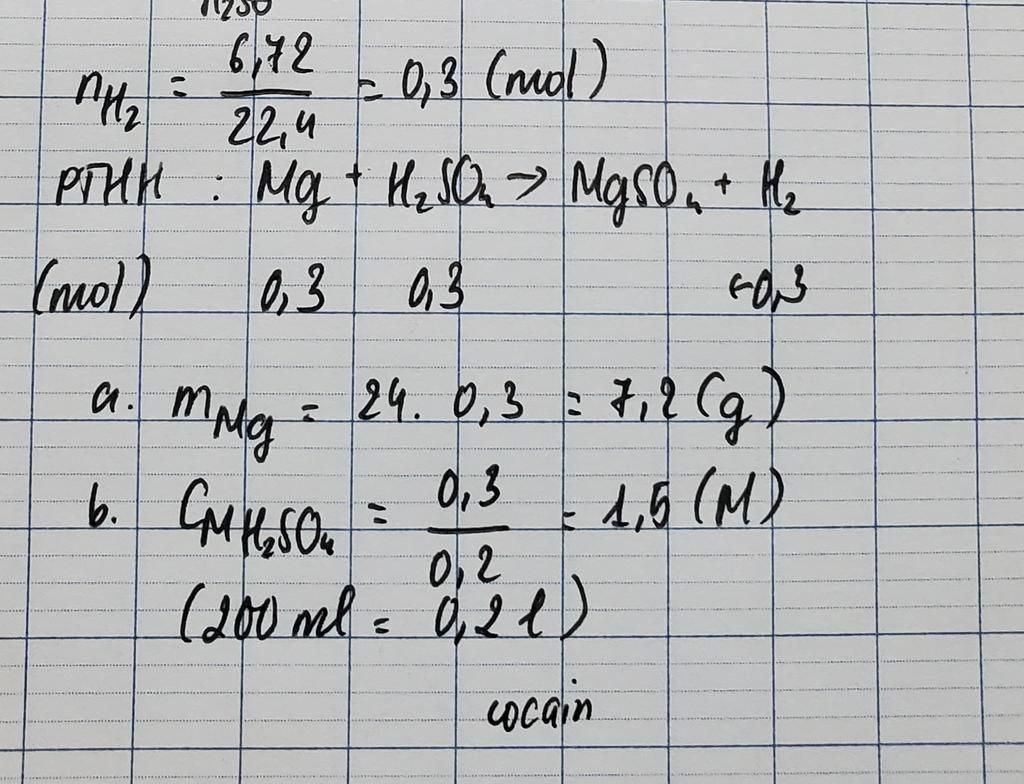 H2SO
nH2 = 6,72/22,4 = 0,3 (mol)
PTHH : Mg + H2SO4 → MgSO4 + H2
(mol) 0,3 0,3 ←0,3
a. mMg = 24. 0,3 = 7,2 (g)
b. CMH2SO4 = 0,3/0,2 = 1,5 (M)
(200 ml = 0,2 l)
cocain